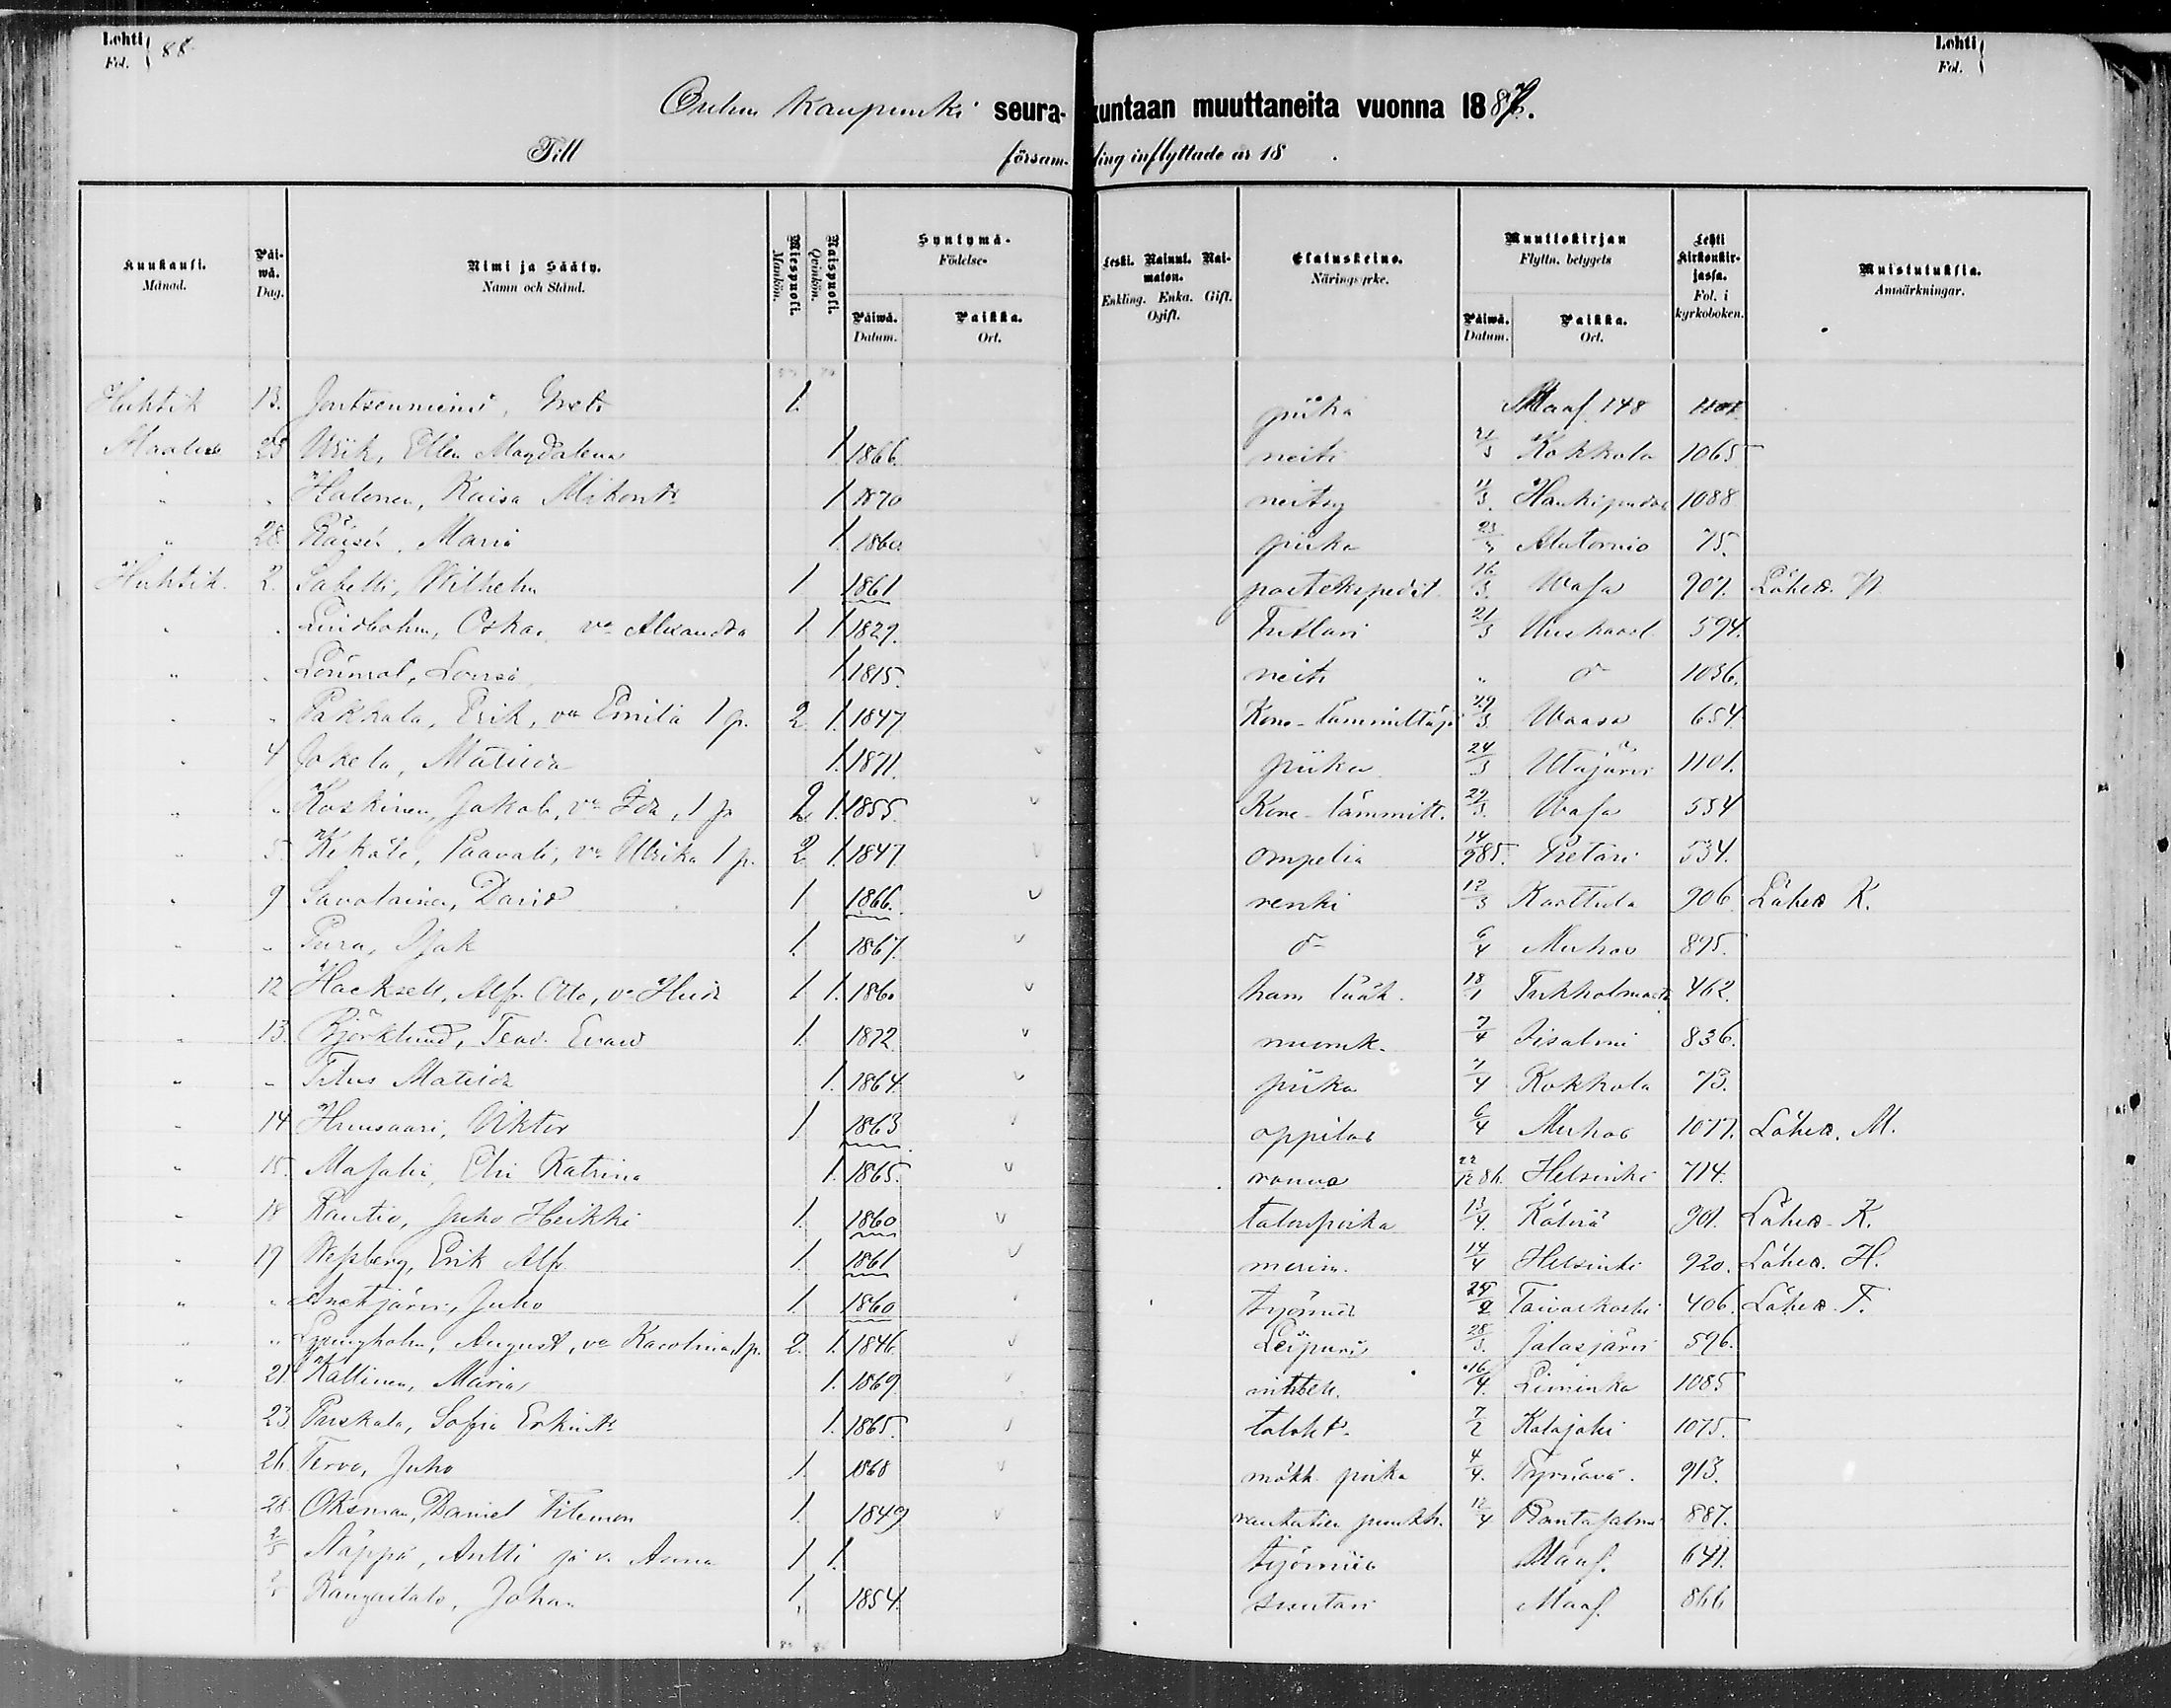 Lehti Fol. 88
Lehti Fol.
Oulun kaupunki seurakuntaan muuttaneita vuonna 1887.
Till församling inflyttade år 18 .
Kuukausi. Månad. Päiwä. Dag. Nimi ja Sääty. Namn och Stånd. Miespuoli. Mankön. Naispuoli. Qvinkön. Syntymä- Födelse- Päiwä. Datum. Paikka. Ort. Leski. Nainut. Naimaton. Enkling. Enka. Gift. Ogift. Elatuskeino. Näringsyrke. Muuttokirjan Flyttn. betygets Päiwä. Datum. Paikka. Ort. Lehti Kirkonkirjassa. Fol. i kyrkoboken. Muistutuksia. Anmärkningar.
Huhtik 13. 1. piika Maaf. 148
Maalisk 25 Wiik, Ellen Magdalena 1. 1866. neiti 21/3 Kokkola 1065
" " Halonen, Kaisa Mikont. 1 1870 neitsy 11/3. Haukipudas 1088
" 28. Maria 1. 1860. piika 23/3 Alatornio 75.
Huhtik. 2. Sabelli, Wilhelm 1 1861 postekspedit. 16/3. Wasa 907. Lähes.
" " Lindbohm, Oskar va Alexandra 1 1 1829. 21/3 Uuskaarl. 594.
" " Lönnrot, Lovisa 1. 1815. neiti " d:o 1036.
" " Pakkala, Erik, va Emilia 1 p. 2 1. 1847 Kone-lämmittäjä 29/3 Waasa 654.
" 4 Jokela, Matilda 1. 1871. piika 24/3 Utajärvi 1101.
" " Koskinen, Jakob, va Ida, 1 p 2. 1. 1855. Kone-lämmitt. 29/3. Wasa 554
" 5. Kekäle, Paavali, va Ulrika 1 p. 2. 1. 1847. ompelia 14/9 85. Pietari 534.
" 9 Savolainen, David 1 1866. renki 12/3 Karttula 906 Lähes K.
" " Pura, Isak 1. 1867. d:o 6/4 Muhos 895.
" 12 Hacksell, Alfr. Otto, va Hilda 1 1. 1860 ham. lääk. 18/1 Tukholmasta 462.
" 13. Björklund, Teod. Evald 1. 1872. 7/4 Iisalmi 836.
" " Titus Matilda 1. 1864. piika 7/4 Kokkola 73.
" 14 Huusaari, Viktor 1. 1863 oppilas 6/4 Muhos 1077. Lähes. M.
" 15. Masalin, Elin Katrina 1. 1865. rouva 22/12 86. Helsinki 714.
" 18 Rautio, Juho Heikki 1. 1860 talonpoika 13/4. Kälviä 901. Lähes K.
" 19 Wessberg, Erik Alfr. 1. 1861 merim. 14/4 Helsinki 920. Lähes. H.
" " Juho 1. 1860 työmies 25/2 Taivalkoski 406. Lähes T.
" " Ljungholm, August, va Karolina 1 p. 2. 1. 1846. Leipuri 28/3. Jalasjärvi 596.
" 21. Kallinen, Maria 1. 1869. 16/4. Liminka 1085
" 23 Purskala, Sofia Erkint. 1. 1865. 7/2 Kalajoki 1075.
" 26. Tervo, Juho 1. 1868 mökk. poika 4/4. Tyrnävä. 913.
" 28. Oksman, Daniel Filemon 1. 1849 rautatien 12/4 Rantasalmi 887.
2/5 Näppä, Antti ja v. Anna 1 1. työmies Maaf. 641.
Kangastalo, Johan 1. 1854. suutari Maaf. 866